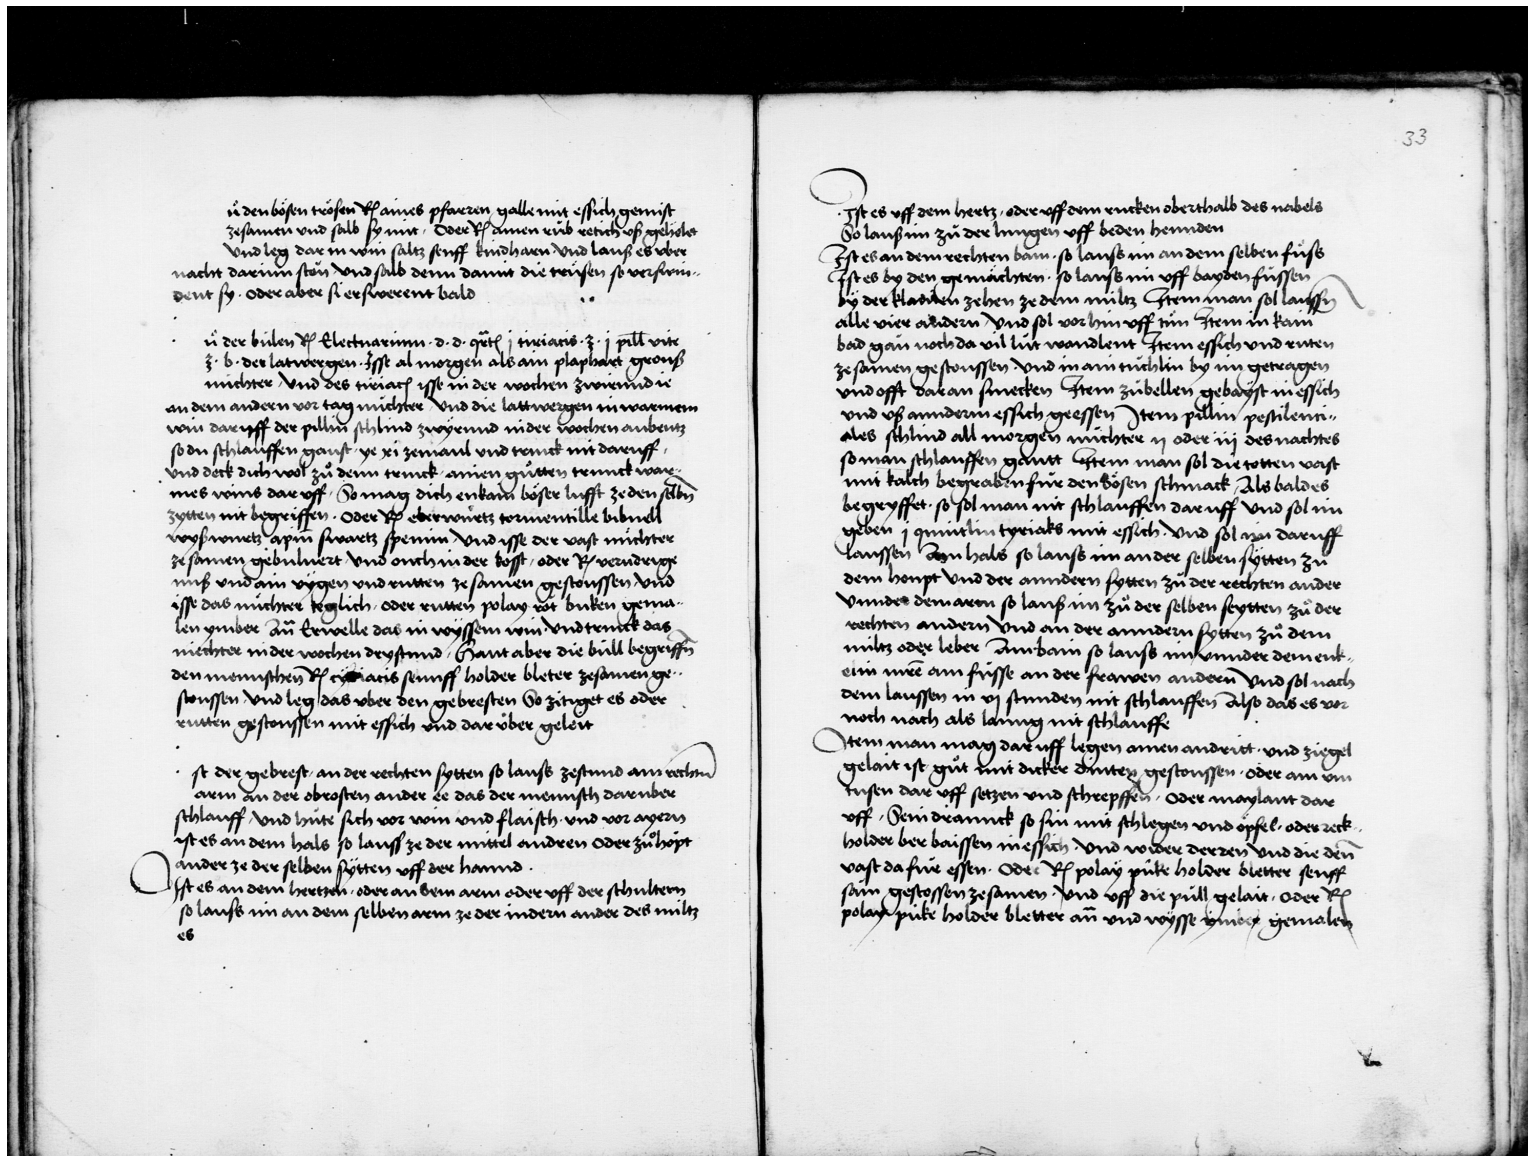 ů den bösen trösen R͛ aines pfarren galle mit essich gemist
zesamen und salb sy mit · Oder R͛ ainen růb retich vß gehölet
Vnd leg dar in win saltz senff kindharn Vnd lauß es vber
nacht darinn ston Vnd salb denn damit die trüsen so verswin-
dent sy · oder aber si erswerent bald
ů der bulen R͛ Electuarium · d · d · qrt j tiriacis · ʒ · j pill vite
ʒ · b · der latwergen · Isse al morgen als ain plaphart grouß
nüchter Vnd des tiriacs isse in der wochen zwirund ie
an dem andern vor tag nüchter Vnd die lattwergen in warmem
win daruff der pillin schlind zwyrund in der wochen aubentz
so du schlauffen gaust · ye xi zemaul und trinck nit daruff ·
Vnd deck dich wol zů denn trinck · ainen gůtten trunck war-
mes wins dar uff · So mag dich enkain böser lufft ze den selbn
zytten nit begriffen · Oder R͛ eberwurtz tormentille bibnell
wyßwurtz apin swartz spenim Vnd isse der vast nüchter
zesamen gebuluert Vnd ouch in der kost · oder R͛ verudrige
nuß vnd ain vygen vnd rutten zesamen gestoussen Vnd
isse das nüchter teglich · oder rutten polay rot buken gema-
len ymber an̄ Erwelle das in wyssem win Vnd trinck das
nüechter in der wochen drystund · Haut aber die bull begriffn
den menschen R͛ tyriacis sennff holder bleter zesamen ge-
stoussen Vnd leg das vber den gebresten So zitiget es oder
rutten gestoussen mit essich vnd dar über geleit
st der gebrest · an der rechten sytten so lauss zestund am rechten
arm an der obrosten ander ee das der mennsch darüber
schlauff Vnd hüte sich vor win und flaisch · und vor ayern
ist es an dem hals so lauss ze der mittel andren Oder zů höpt
ander ze der selben sytten uff der hannd ·
Ist es an dem hertzen · oder an dem arm oder uff der schultern
so lauss im an dem selben arm ze der indern ander des miltz
es
33
· Ist es uff dem hertz · oder uff dem rucken oberthalb des nabels
So lauß im zů der lungen uff beden hennden
Ist es an dem rechten bain · so lauss im an dem selben fůss
Ist es by den gemächten · so lauss im uff bayden füssen
by der klainen zehen ze dem miltz Item man sol laussn
alle vier andern Vnd sol vorhin uff tůn Item in kain
bad gan noch da vil lüt wandlent Item essich und rutten
zesamen gestoussen Vnd in ain tůchlin by im getragen
und offt daran smecken Item zübellen gebayst in essich
und vß annderm essich geessen Item pillin pestilenci-
ales schlind all morgen nüchter ij oder iij des nachtes
so man schlauffen gautt Item man sol die totten vast
mit kalch begraben für den bösen schmack Als bald es
begryffet · so sol man nit schlauffen daruff Vnd sol im
geben j quintlin tyriaks mit essich · Vnd sol im daruff
laussen Am hals so lauss im an der selben sytten zu
dem houpt Vnd der anndern sytten zů der rechten ander
Vnnder dem arm so lauß im zů der selben seytten zů der
rechten andern Vnd an der anndern sytten zů dem
miltz oder leber Am bain so lauss im vnnder dem enk-
elin mer am füsse an der frawen andern Vnd sol nach
dem laussen in vj stunden nit schlauffen Also das es vor
noch nach als lanng nit schlauffe
Item man mag daruff legen ainen andritt · und ziegel
gelait ist gůt mit dicker dinten gestoussen · oder ain ven
tusen dar uff setzen und schrepffen · Oder maylant dar
uff · Sein dranck so sin mit schlegen und öpfel · oder reck-
holder ber baissen in essich · Vnd wider derren Vnd die denn
vast da für essen · Oder R͛ polay püke holder bletter senff
sam gestossen zesamen · Vnd uff die püll gelait · Oder R͛
polay püke holder bletter an̄ vnd wysse ymber gemalen